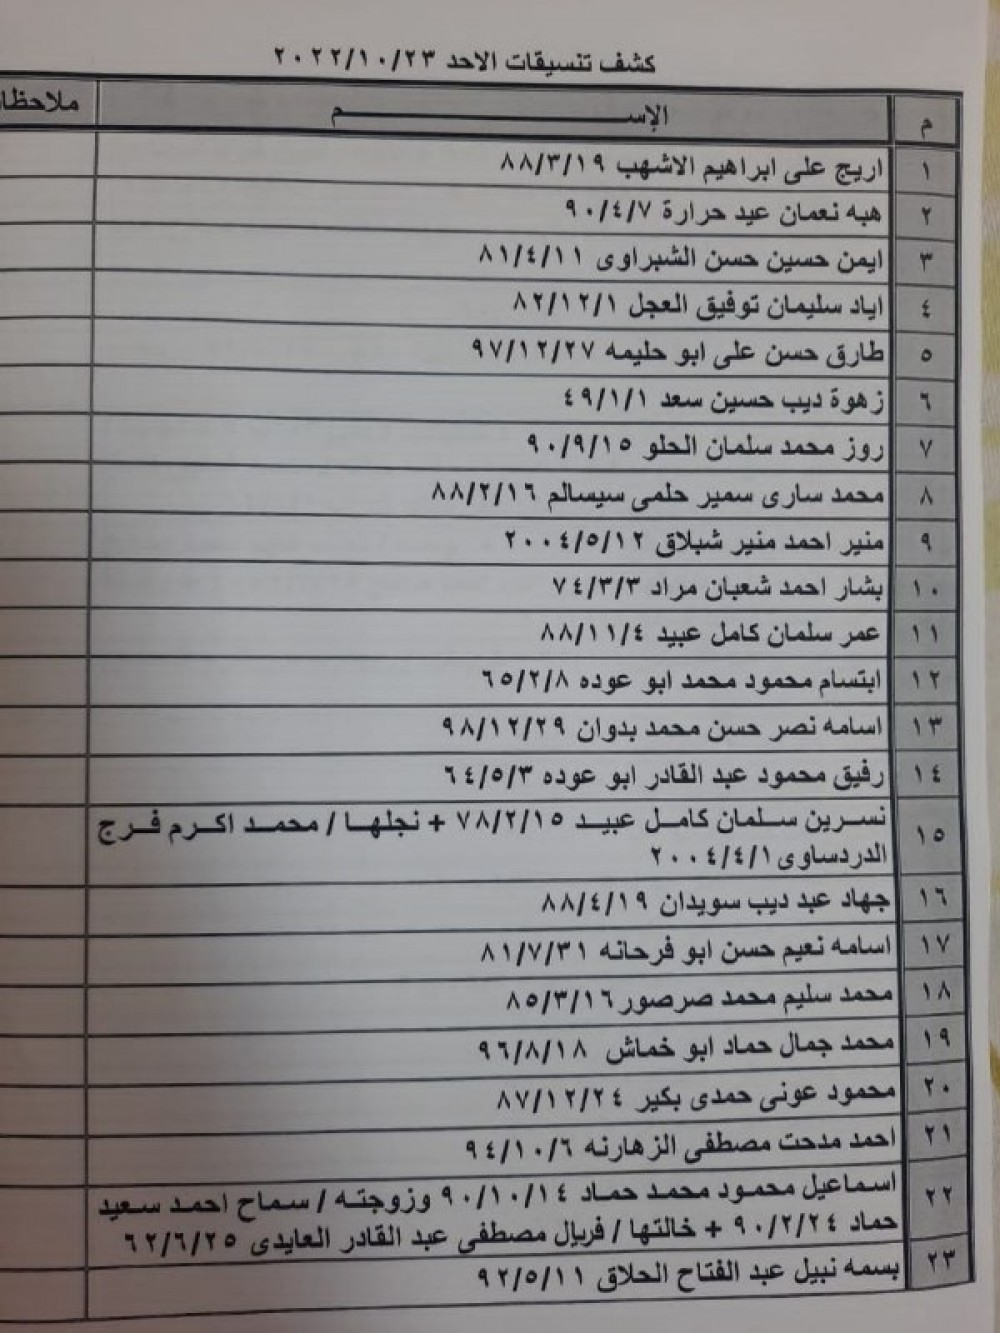 كشف تنسيقات الاحد ٢٠٢٢/١٠/٢٣
م الإســـــم ملاحظا
١ اريج على ابراهيم الاشهب ٨٨/٣/١٩
٢ هبه نعمان عيد حرارة ٩٠/٤/٧
٣ ايمن حسين حسن الشبراوى ٨١/٤/١١
٤ اياد سليمان توفيق العجل ٨٢/١٢/١
٥ طارق حسن على ابو حليمه ٩٧/١٢/٢٧
٦ زهوة ديب حسين سعد ٤٩/١/١
٧ روز محمد سلمان الحلو ٩٠/٩/١٥
٨ محمد سارى سمير حلمى سيسالم ٨٨/٢/١٦
٩ منير احمد منير شبلاق ٢٠٠٤/٥/١٢
١٠ بشار احمد شعبان مراد ٧٤/٣/٣
١١ عمر سلمان كامل عبيد ٨٨/١١/٤
١٢ ابتسام محمود محمد ابو عوده ٦٥/٢/٨
١٣ اسامه نصر حسن محمد بدوان ٩٨/١٢/٢٩
١٤ رفيق محمود عبد القادر ابو عوده ٦٤/٥/٣
١٥ نسرين سلمان كامل عبيد ٧٨/٢/١٥ + نجلها / محمد اكرم فرج
الدردساوى ٢٠٠٤/٤/١
١٦ جهاد عبد ديب سويدان ٨٨/٤/١٩
١٧ اسامه نعيم حسن ابو فرحانه ٨١/٧/٣١
١٨ محمد سليم محمد صرصور ٨٥/٣/١٦
١٩ محمد جمال حماد ابو خماش ٩٦/٨/١٨
٢٠ محمود عونى حمدى بكير ٨٧/١٢/٢٤
٢١ احمد مدحت مصطفى الزهارنه ٩٤/١٠/٦
٢٢ اسماعيل محمود محمد حماد ٩٠/١٠/١٤ وزوجته / سماح احمد سعيد
حماد ٩٠/٢/٢٤ + خالتها / فريال مصطفى عبد القادر العايدى ٦٢/٦/٢٥
٢٣ بسمه نبيل عبد الفتاح الحلاق ٩٢/٥/١١